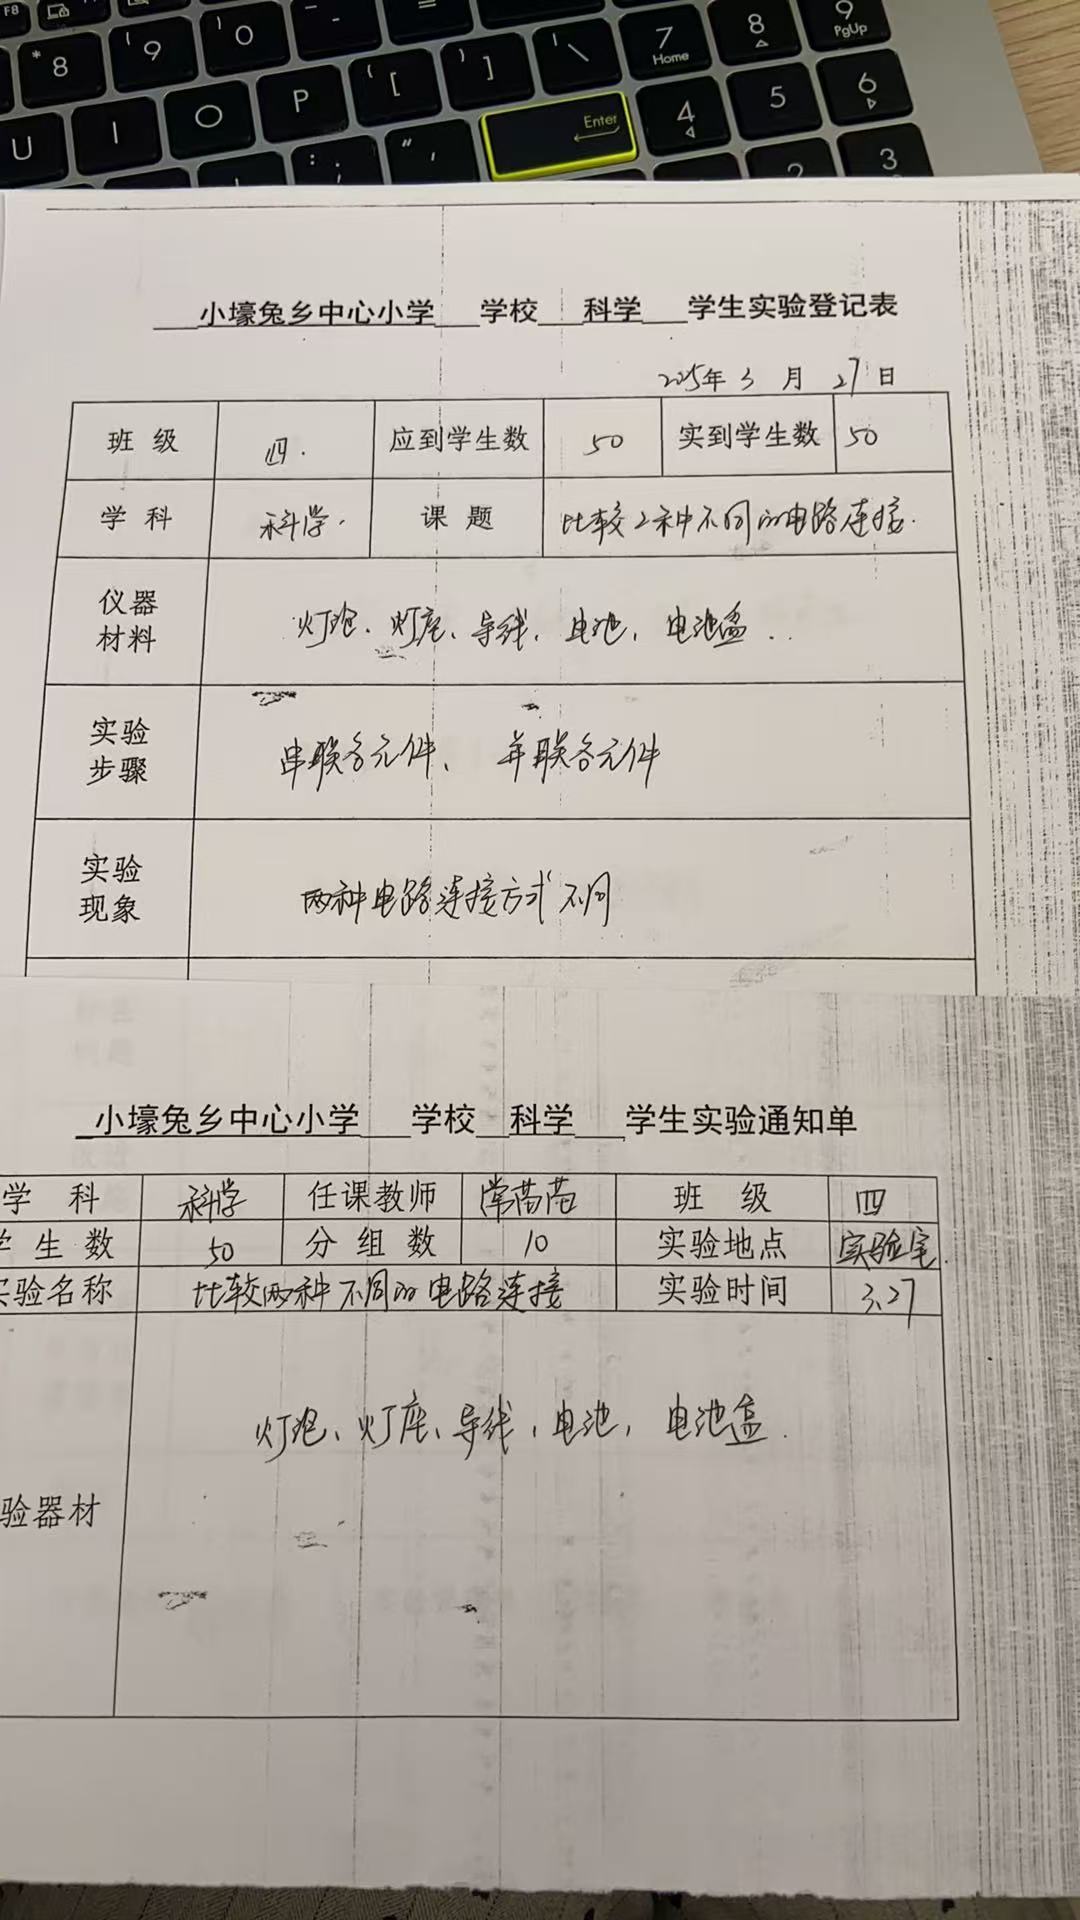 F8
* 8
( 9
) 0
=
7 Home
8
9 PgUp
U I O P { [ } ] | \
4 5 6
: ; " ' Enter
2 3
小壕兔乡中心小学 学校 科学 学生实验登记表
2025年 3 月 27 日
班 级 四. 应到学生数 50 实到学生数 50
学 科 科学. 课 题 比较2种不同的电路连接.
仪器材料 灯泡、灯座、导线、电池、电池盒..
实验步骤 串联各元件、 并联各元件
实验现象 两种电路连接方式不同
小壕兔乡中心小学 学校 科学 学生实验通知单
学 科 科学 任课教师 班 级 四
学 生 数 50 分 组 数 10 实验地点 实验室.
实验名称 比较两种不同的电路连接 实验时间 3.27
验器材 灯泡、灯座、导线、电池、电池盒.